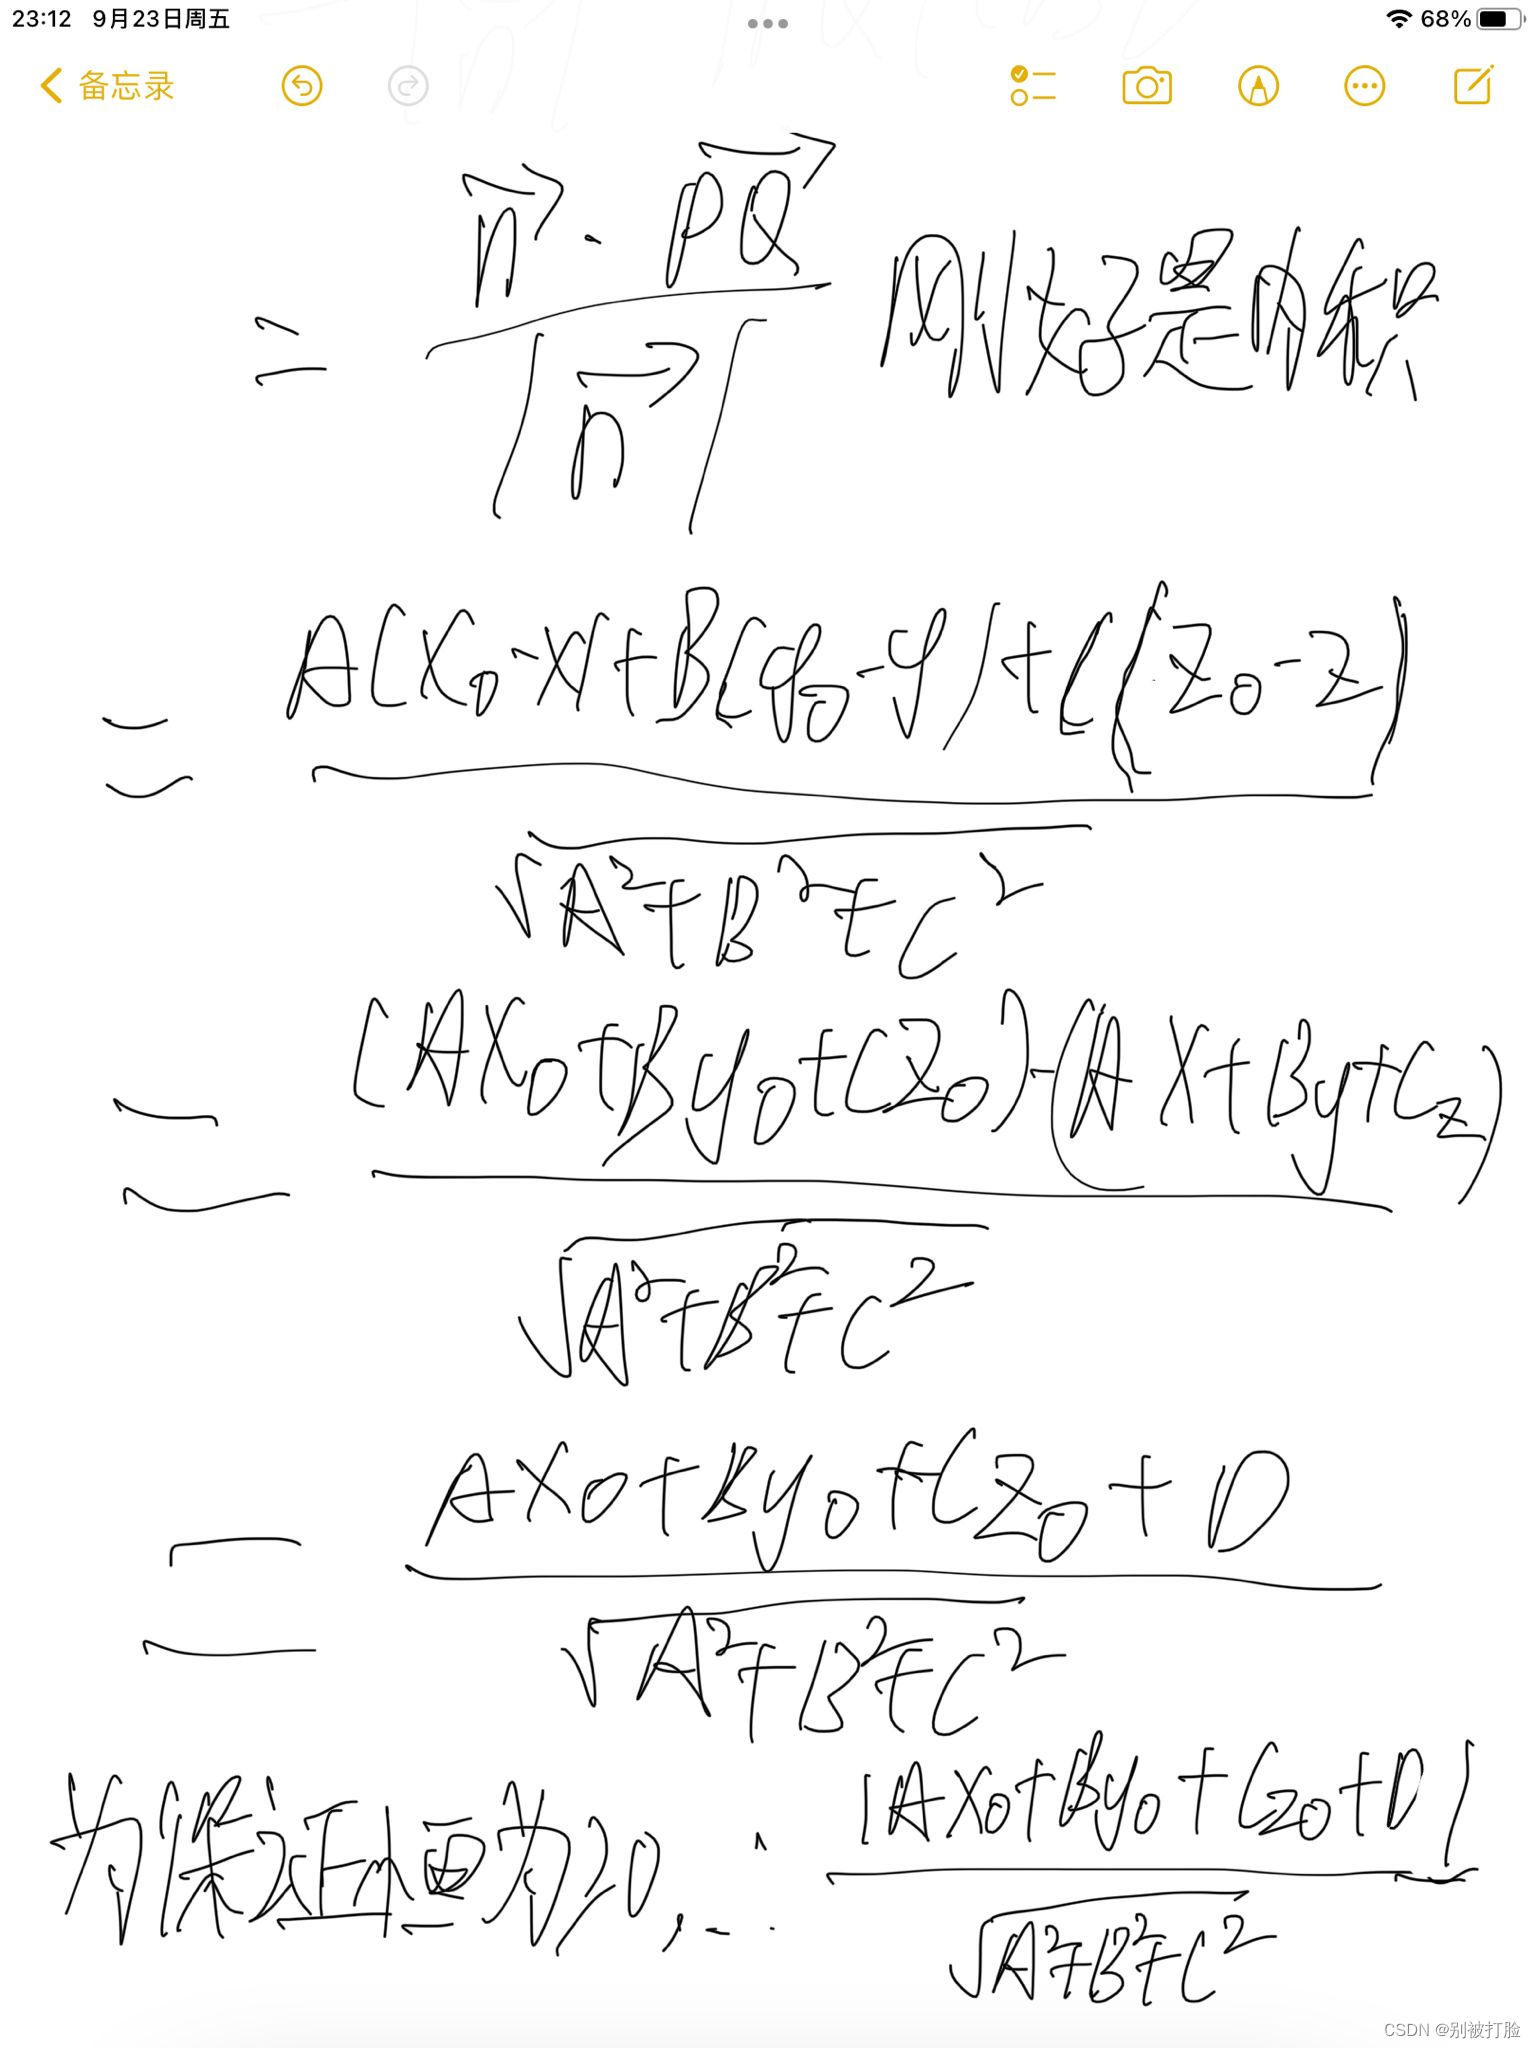 23:12 9月23日周五 68%
备忘录
= n⃗ · PQ⃗ / |n⃗| 刚好是内积
= A(x₀-x)+B(y₀-y)+C(z₀-z) / √A²+B²+C²
= (Ax₀+By₀+Cz₀)-(Ax+By+Cz) / √A²+B²+C²
= Ax₀+By₀+Cz₀+D / √A²+B²+C²
为保证恒为≥0, ∴ |Ax₀+By₀+Cz₀+D| / √A²+B²+C²
CSDN @别被打脸